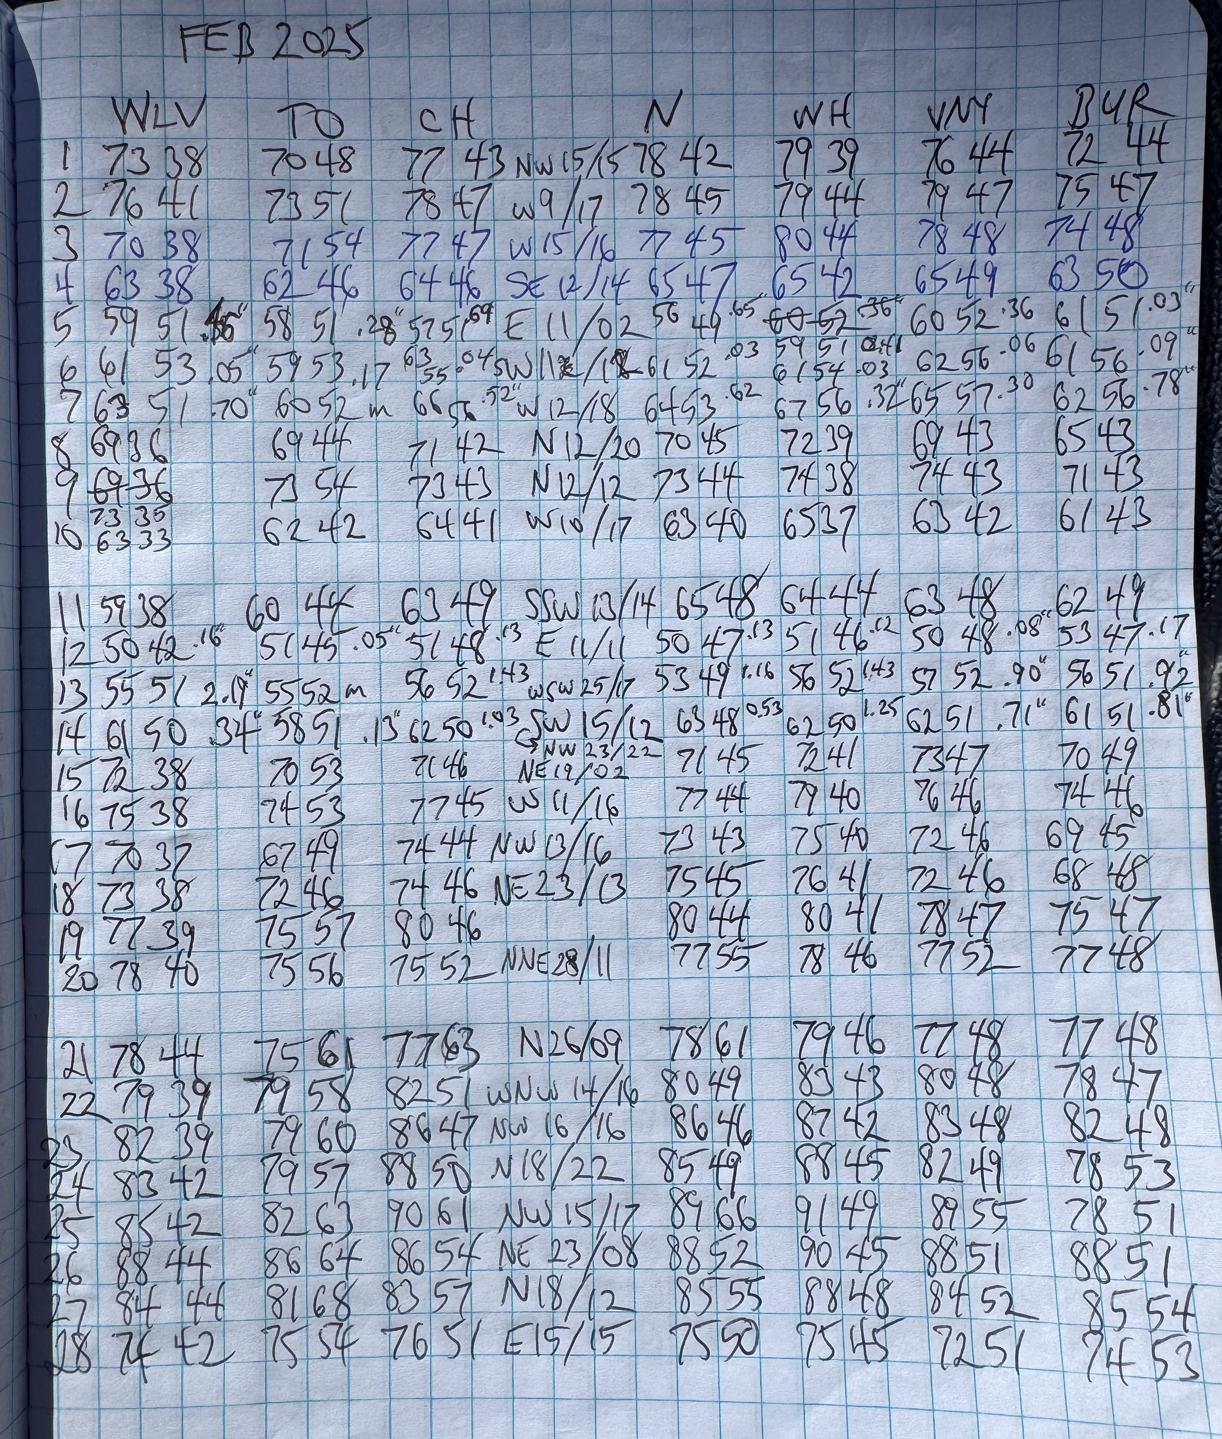 FEB 2025
WLV TO CH N WH VNY BUR
1 73 38 70 48 77 43 NW 15/15 78 42 79 39 76 44 72 44
2 76 41 73 51 78 47 W 9/17 78 45 79 44 79 47 75 47
3 70 38 71 54 77 47 W 15/16 77 45 80 44 78 48 74 48
4 63 38 62 46 64 46 SE 12/14 65 47 65 42 65 49 63 50
5 59 51 58 51 .28" 57 51 .69 E 11/02 56 49 .65" 60 52 .36" 60 52 .36 61 51 .03"
59 51
6 61 53 .05" 59 53 .17 63 55 .04 SW 61 52 .03 61 54 .03 62 56 .06 61 56 .09"
7 63 51 .70" 60 52 m 66 56 .52" W 12/18 64 53 .62 67 56 .32" 65 57 .30 62 56 .78"
8 69 36 69 44 71 42 N 12/20 70 45 72 39 69 43 65 43
9 69 36 73 54 73 43 N 12/12 73 44 74 38 74 43 71 43
73 35
10 63 33 62 42 64 41 W 10/17 63 40 65 37 63 42 61 43
11 59 38 60 44 63 49 SSW 13/14 65 48 64 44 63 48 62 49
12 50 42 .16" 51 45 .05" 51 48 .13 E 11/11 50 47 .13 51 46 .12 50 48 .08" 53 47 .17
13 55 51 2.19" 55 52 m 56 52 1.43 WSW 25/17 53 49 1.16 56 52 1.43 57 52 .90" 56 51 .92"
14 61 50 .34" 58 51 .13" 62 50 1.03 SW 15/12 63 48 0.53 62 50 1.25 62 51 .71" 61 51 .81"
NW 23/22
15 72 38 70 53 71 46 NE 19/02 71 45 72 41 73 47 70 49
16 75 38 74 53 77 45 W 11/16 77 44 79 40 76 46 74 46
17 70 37 67 49 74 44 NW 13/16 73 43 75 40 72 46 69 45
18 73 38 72 46 74 46 NE 23/13 75 45 76 41 72 46 68 48
19 77 39 75 57 80 46 80 44 80 41 78 47 75 47
20 78 40 75 56 75 52 NNE 28/11 77 55 78 46 77 52 77 48
21 78 44 75 61 77 63 N 26/09 78 61 79 46 77 48 77 48
22 79 39 79 58 82 51 WNW 14/16 80 49 83 43 80 48 78 47
23 82 39 79 60 86 47 NW 16/16 86 46 87 42 83 48 82 48
24 83 42 79 57 88 50 N 18/22 85 49 88 45 82 49 78 53
25 85 42 82 63 90 61 NW 15/17 89 66 91 49 89 55 78 51
26 88 44 86 64 86 54 NE 23/08 88 52 90 45 88 51 88 51
27 84 44 81 68 83 57 N 18/12 85 55 88 48 84 52 85 54
28 74 42 75 54 76 51 E 15/15 75 50 75 45 72 51 74 53